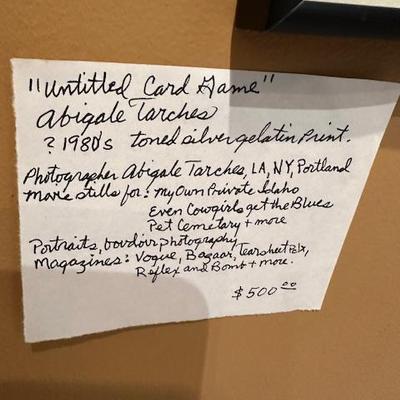 "Untitled Card Game"
Abigale Tarches
? 1980's toned silver gelatin print.
Photographer Abigale Tarches, LA, NY, Portland
Movie stills for: My Own Private Idaho
Even Cowgirls get the Blues
Pet Cemetary + more
Portraits, boudoir photography
Magazines: Vogue, Bazaar, Tearsheet
Reflex and Bomb + more.
$500.00